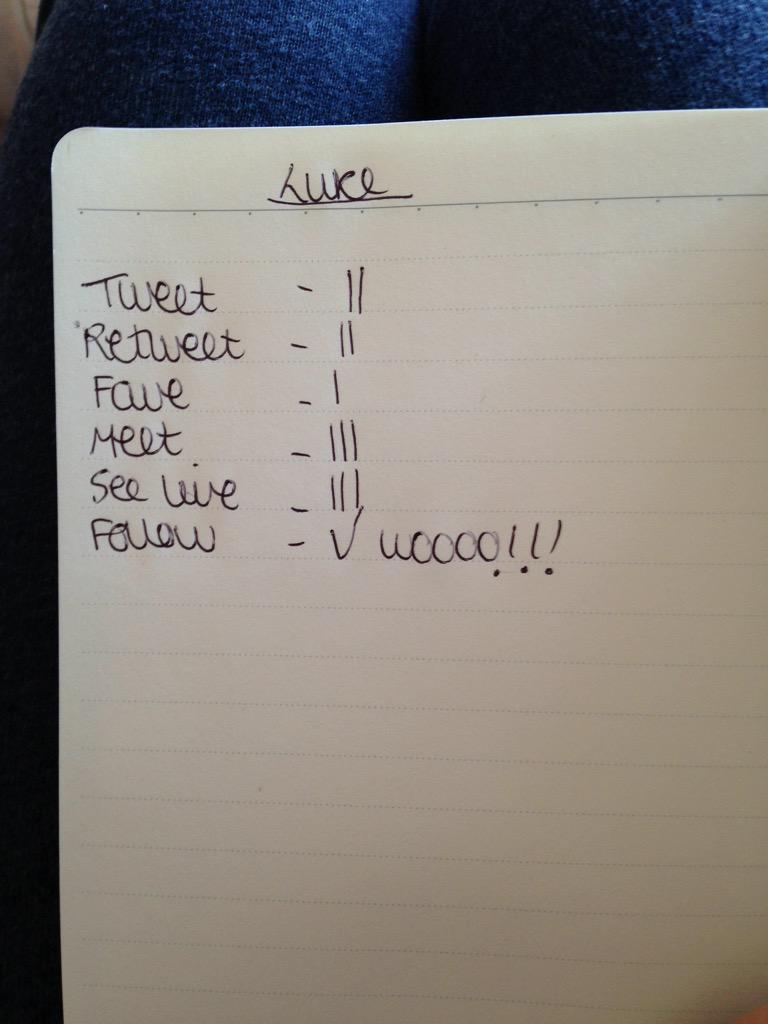 Luke
Tweet - ||
Retweet - ||
Fave - |
Meet - |||
See live - |||
Follow - √ woooo!!!